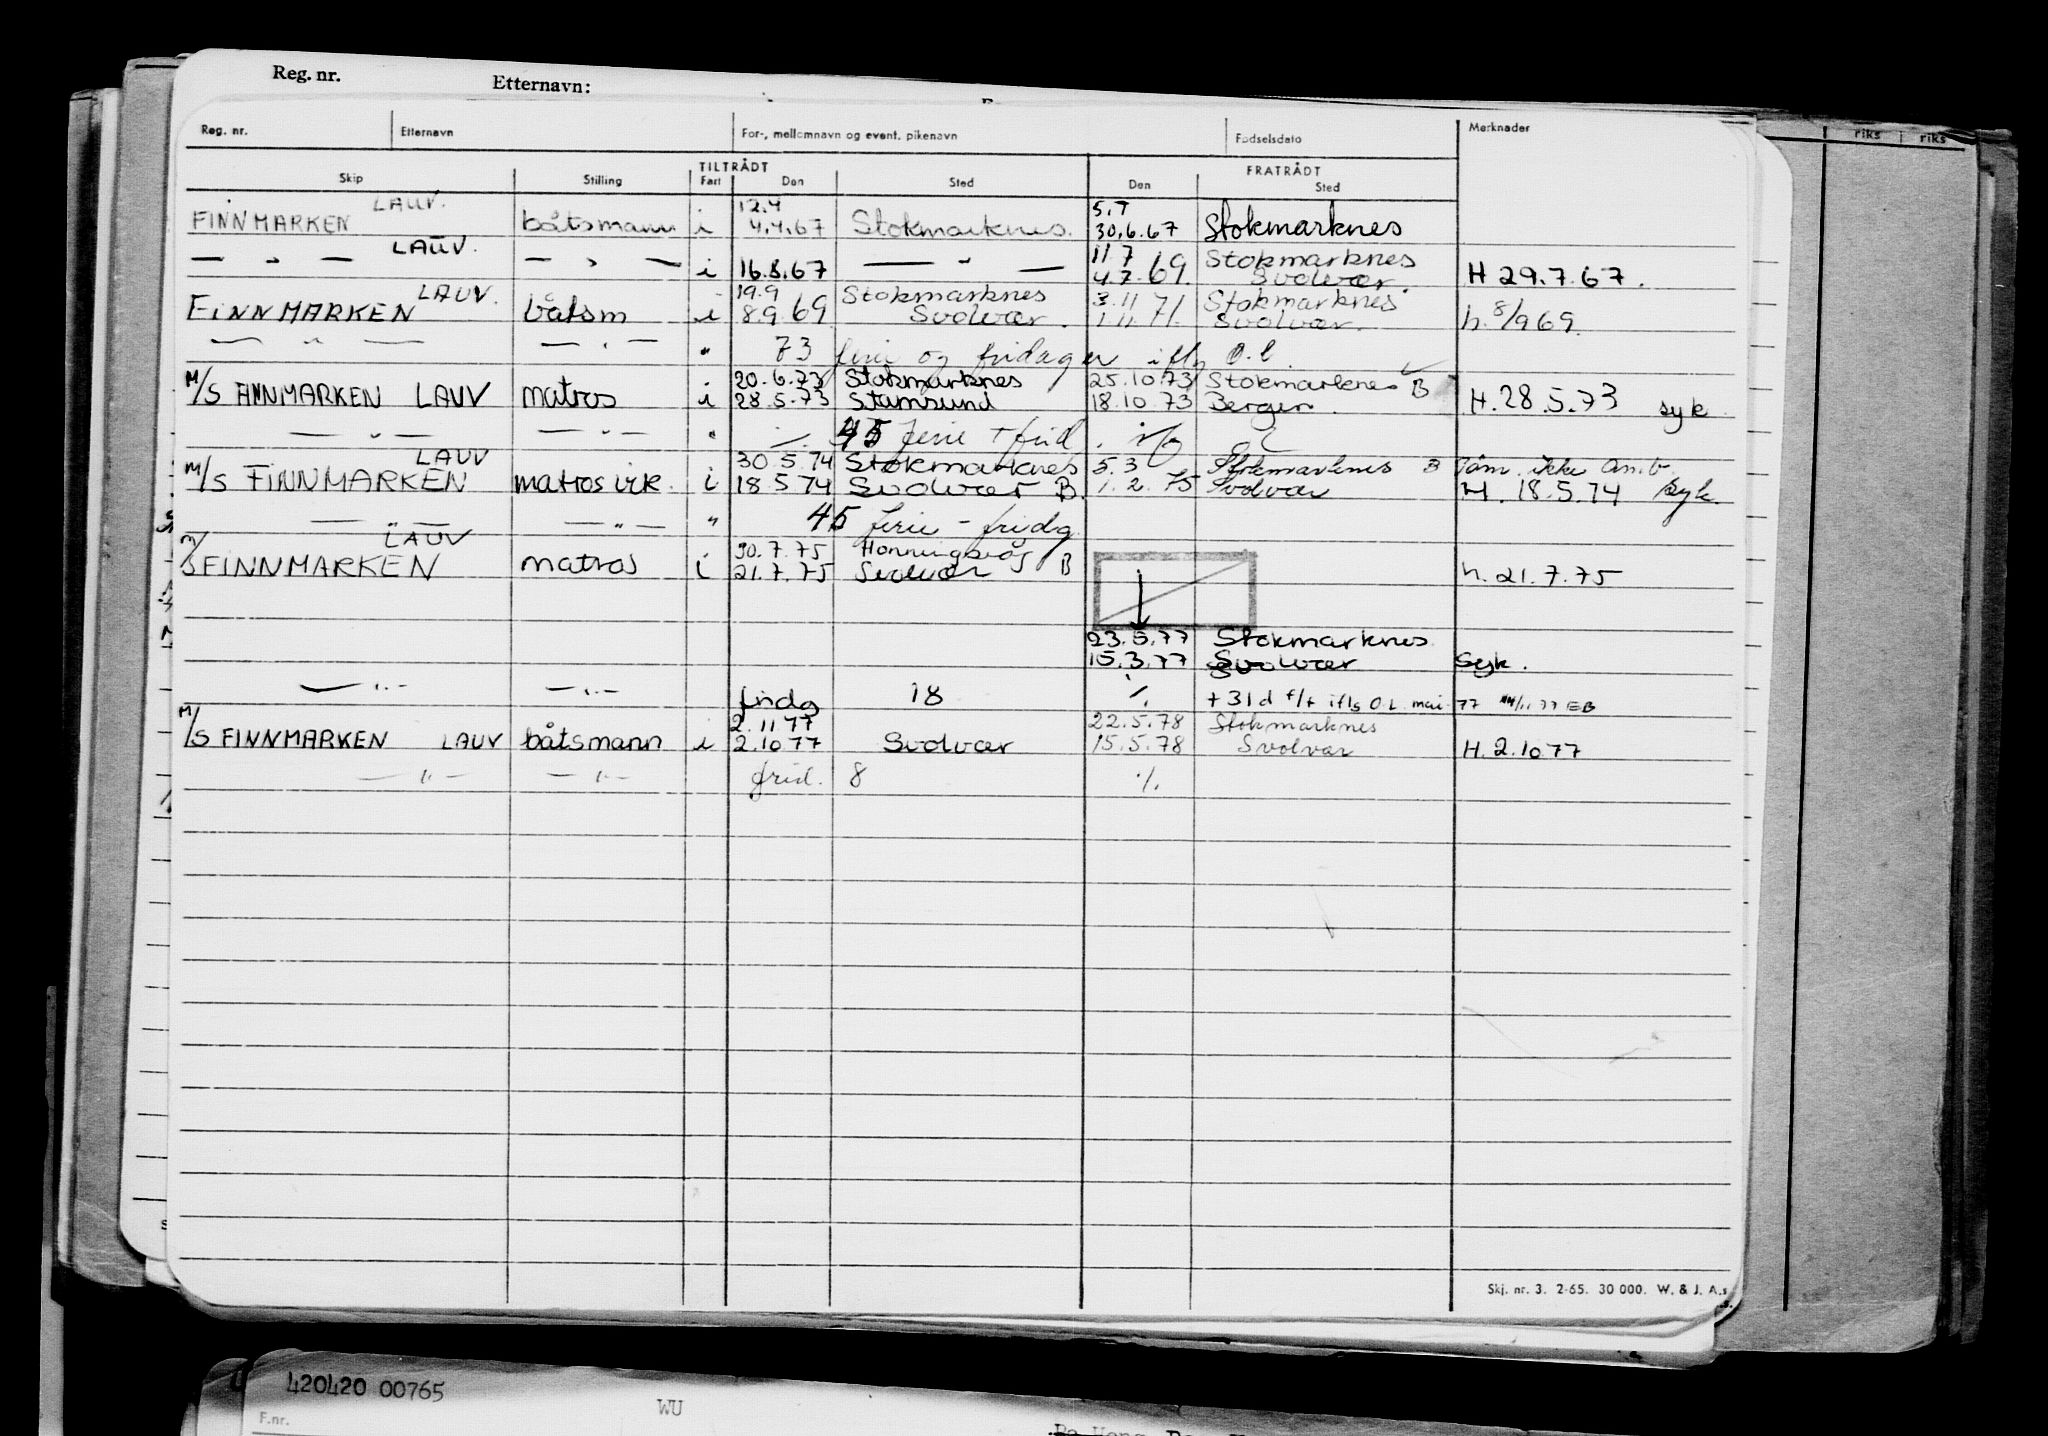 Reg. nr. Etternavn:
Reg. nr. Etternavn For-, mellomnavn og event. pikenavn Fødselsdato Merknader riks riks
TILTRÅDT FRATRÅDT
Skip Stilling Fart Den Sted Den Sted
LAUV. 12.4 5.7
FINNMARKEN båtsmann i 4.4.67 Stokmarknes. 30.6.67 Stokmarknes
LAUV. 11 7 Stokmarknes
— " — — " — i 16.8.67 — " — 4.7.69. Svolvær. H 29.7.67.
LAUV. 19.9 Stokmarknes 3.11 Stokmarknes
FINNMARKEN båtsm i 8.9.69 Svolvær. 1.11.71. Svolvær. h. 8/9 69.
— " — — " — " 73 ferie og fridager iflg O.l
20.6.73 Stokmarknes 25.10.73 Stokmarknes B
M/S FINNMARKEN LAUV matros i 28.5.73 Stamsund 18.10.73 Bergen. H. 28.5.73 syk
— " — — " — " 45 ferie + frid
LAUV 30.5.74 Stokmarknes 5.3 Stokmarknes B ikke
M/S FINNMARKEN matros i 18.5.74 Svolvær B. 1.2.75 Svolvær H. 18.5.74 syk.
— " — — " — " 45 ferie - fridg
LAUV 30.7.75 Honningsvåg
M/S FINNMARKEN matros i 21.7.75 Svolvær B h. 21.7.75
23.5.77 Stokmarknes.
15.3.77 Svolvær Syk.
— " — — " — fridg 18 ./. + 31 d f/f iflg O.L. mai 77 EB
2.11 77 22.5.78 Stokmarknes
M/S FINNMARKEN LAUV båtsmann i 2.10 77 Svolvær 15.5.78 Svolvær H. 2.10 77
— " — — " — frid. 8 ./.
Skj. nr. 3. 2-65. 30 000. W. & J. A.s
420420 00765
WU
F.nr.